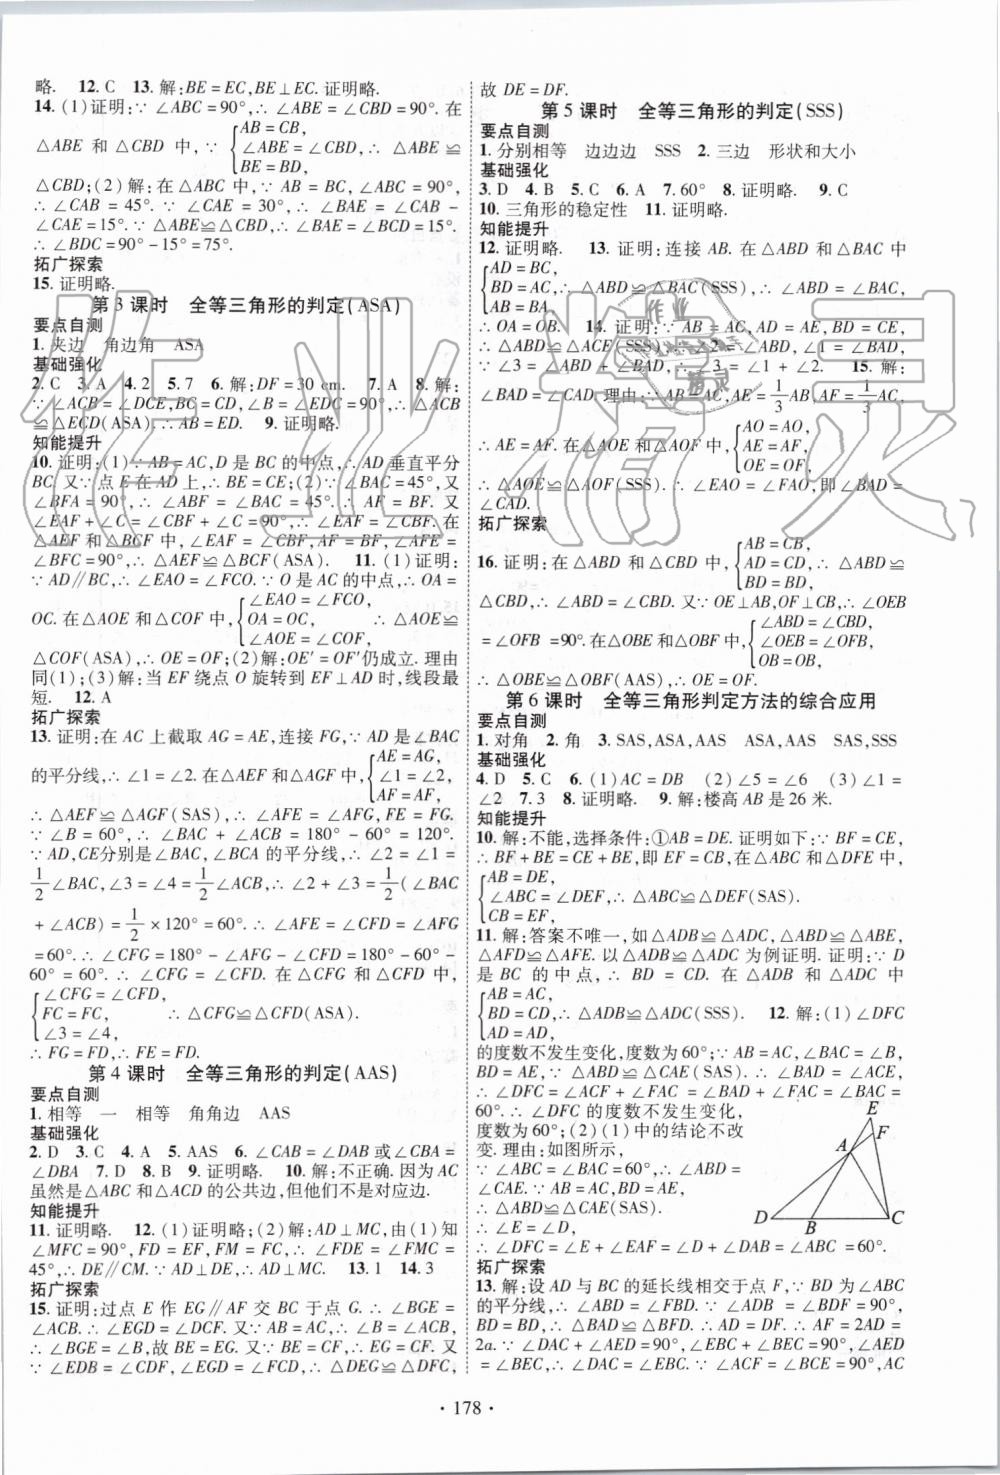 略. 12. C 13. 解:BE = EC,BE⊥EC. 证明略.
14. (1)证明:∵ ∠ABC = 90°,∴ ∠ABE = ∠CBD = 90°. 在
△ABE 和 △CBD 中,∵ {AB = CB, ∠ABE = ∠CBD,∴ △ABE≌ BE = BD,
△CBD;(2)解:在△ABC 中,∵ AB = BC,∠ABC = 90°,
∴ ∠CAB = 45°. ∵ ∠CAE = 30°,∴ ∠BAE = ∠CAB -
∠CAE = 15°. ∵ △ABE≌△CBD,∴ ∠BAE = ∠BCD = 15°.
∴ ∠BDC = 90° - 15° = 75°.
拓广探索
15. 证明略.
第 3 课时 全等三角形的判定(ASA)
要点自测
1. 夹边 角边角 ASA
基础强化
2. C 3. A 4. 2 5. 7 6. 解:DF = 30 cm. 7. A 8. 解:
∵ ∠ACB = ∠DCE,BC = CD,∠B = ∠EDC = 90°,∴ △ACB
≌△ECD(ASA). ∴ AB = ED. 9. 证明略.
知能提升
10. 证明:(1)∵ AB = AC,D 是 BC 的中点,∴ AD 垂直平分
BC. 又∵点 E 在 AD 上,∴ BE = CE;(2)∵ ∠BAC = 45°,又
∠BFA = 90°,∴ ∠ABF = ∠BAC = 45°. ∴ AF = BF. 又
∠EAF + ∠C = ∠CBF + ∠C = 90°,∴ ∠EAF = ∠CBF. 在
△AEF 和△BCF 中,∠EAF = ∠CBF,AF = BF,∠AFE =
∠BFC = 90°,∴ △AEF≌△BCF(ASA). 11. (1)证明:
∵ AD∥BC,∴ ∠EAO = ∠FCO. ∵ O 是 AC 的中点,∴ OA =
OC. 在△AOE 和△COF 中,{∠EAO = ∠FCO, OA = OC, ∴ △AOE≌ ∠AOE = ∠COF,
△COF(ASA),∴ OE = OF;(2)解:OE′ = OF′仍成立. 理由
同(1);(3)解:当 EF 绕点 O 旋转到 EF⊥AD 时,线段最
短. 12. A
拓广探索
13. 证明:在 AC 上截取 AG = AE,连接 FG,∵ AD 是∠BAC
的平分线,∴ ∠1 = ∠2. 在△AEF 和△AGF 中,{AE = AG, ∠1 = ∠2, AF = AF,
∴ △AEF≌△AGF(SAS),∴ ∠AFE = ∠AFG,FE = FG.
∵ ∠B = 60°,∴ ∠BAC + ∠ACB = 180° - 60° = 120°.
∵ AD,CE分别是∠BAC,∠BCA 的平分线,∴ ∠2 = ∠1 =
1/2∠BAC,∠3 = ∠4 = 1/2∠ACB,∴ ∠2 + ∠3 = 1/2(∠BAC
+ ∠ACB) = 1/2 × 120° = 60°. ∴ ∠AFE = ∠CFD = ∠AFG
= 60°. ∴ ∠CFG = 180° - ∠AFG - ∠CFD = 180° - 60° -
60° = 60°. ∴ ∠CFG = ∠CFD. 在 △CFG 和 △CFD 中,
{∠CFG = ∠CFD, FC = FC, ∴ △CFG≌△CFD(ASA). ∠3 = ∠4,
∴ FG = FD,∴ FE = FD.
第 4 课时 全等三角形的判定(AAS)
要点自测
1. 相等 一 相等 角角边 AAS
基础强化
2. D 3. C 4. A 5. AAS 6. ∠CAB = ∠DAB 或∠CBA =
∠DBA 7. D 8. D 9. 证明略. 10. 解:不正确. 因为 AC
虽然是△ABC 和△ACD 的公共边,但他们不是对应边.
知能提升
11. 证明略. 12. (1)证明略;(2)解:AD⊥MC,由(1)知
∠MFC = 90°,FD = EF,FM = FC,∴ ∠FDE = ∠FMC =
45°,∴ DE∥CM. ∵ AD⊥DE,∴ AD⊥MC. 13. 1 14. 3
拓广探索
15. 证明:过点 E 作 EG∥AF 交 BC 于点 G. ∴ ∠BGE =
∠ACB. ∴ ∠EGD = ∠DCF. ∵ AB = AC,∴ ∠B = ∠ACB,
∴ ∠BGE = ∠B,故 BE = EG. 又∵ BE = CF,∴ EG = CF. 又
∵ ∠EDB = ∠CDF,∠EGD = ∠FCD,∴ △DEG≌△DFC,
故 DE = DF.
第 5 课时 全等三角形的判定(SSS)
要点自测
1. 分别相等 边边边 SSS 2. 三边 形状和大小
基础强化
3. D 4. B 5. C 6. A 7. 60° 8. 证明略. 9. C
10. 三角形的稳定性 11. 证明略.
知能提升
12. 证明略. 13. 证明:连接 AB. 在△ABD 和△BAC 中
{AD = BC, BD = AC,∴ △ABD≌△BAC(SSS),∴ ∠ABD = ∠BAC, AB = BA,
∴ OA = OB. 14. 证明:∵ AB = AC,AD = AE,BD = CE,
∴ △ABD≌△ACE(SSS),∴ ∠2 = ∠ABD,∠1 = ∠BAD.
∵ ∠3 = ∠ABD + ∠BAD,∴ ∠3 = ∠1 + ∠2. 15. 解:
∠BAD = ∠CAD. 理由:∵ AB = AC,AE = 1/3 AB,AF = 1/3 AC,
∴ AE = AF. 在△AOE 和△AOF 中,{AO = AO, AE = AF, OE = OF,
∴ △AOE≌△AOF(SSS). ∴ ∠EAO = ∠FAO,即∠BAD =
∠CAD.
拓广探索
16. 证明:在△ABD 和△CBD 中,{AB = CB, AD = CD,∴ △ABD≌ BD = BD,
△CBD,∴ ∠ABD = ∠CBD. 又∵ OE⊥AB,OF⊥CB,∴ ∠OEB
= ∠OFB = 90°. 在△OBE 和△OBF 中,{∠ABD = ∠CBD, ∠OEB = ∠OFB, OB = OB,
∴ △OBE≌△OBF(AAS),∴ OE = OF.
第 6 课时 全等三角形判定方法的综合应用
要点自测
1. 对角 2. 角 3. SAS,ASA,AAS ASA,AAS SAS,SSS
基础强化
4. D 5. C 6. (1)AC = DB (2)∠5 = ∠6 (3)∠1 =
∠2 7. 3 8. 证明略. 9. 解:楼高 AB 是 26 米.
知能提升
10. 解:不能,选择条件:①AB = DE. 证明如下:∵ BF = CE,
∴ BF + BE = CE + BE,即 EF = CB,在△ABC 和△DFE 中,
{AB = DE, ∠ABC = ∠DEF,∴ △ABC≌△DEF(SAS). CB = EF,
11. 解:答案不唯一,如△ADB≌△ADC,△ABD≌△ABE,
△AFD≌△AFE. 以△ADB≌△ADC 为例证明. 证明:∵ D
是 BC 的中点,∴ BD = CD. 在△ADB 和△ADC 中
{AB = AC, BD = CD,∴ △ADB≌△ADC(SSS). 12. 解:(1)∠DFC AD = AD,
的度数不发生变化,度数为 60°;∵ AB = AC,∠BAC = ∠B,
BD = AE,∴ △ABD≌△CAE(SAS),∴ ∠BAD = ∠ACE,
∴ ∠DFC = ∠ACF + ∠FAC = ∠BAD + ∠FAC = ∠BAC =
60°. ∴ ∠DFC 的度数不发生变化,
度数为 60°;(2)(1)中的结论不改
变. 理由:如图所示,
∵ ∠ABC = ∠BAC = 60°,∴ ∠ABD =
∠CAE. ∵ AB = AC,BD = AE,
∴ △ABD≌△CAE(SAS).
∴ ∠E = ∠D,
∴ ∠DFC = ∠E + ∠EAF = ∠D + ∠DAB = ∠ABC = 60°.
E
F
A
D
B
C
拓广探索
13. 解:设 AD 与 BC 的延长线相交于点 F,∵ BD 为∠ABC
的平分线,∴ ∠ABD = ∠FBD. ∵ ∠ADB = ∠BDF = 90°,
BD = BD,∴ △BAD≌△BFD. ∴ AD = DF. ∴ AF = 2AD =
2a. ∵ ∠DAC + ∠AED = 90°,∠EBC + ∠BEC = 90°,∠AED
= ∠BEC,∴ ∠DAC = ∠EBC. ∵ ∠ACF = ∠BCE = 90°,AC
· 178 ·
作业精灵
作业
精灵